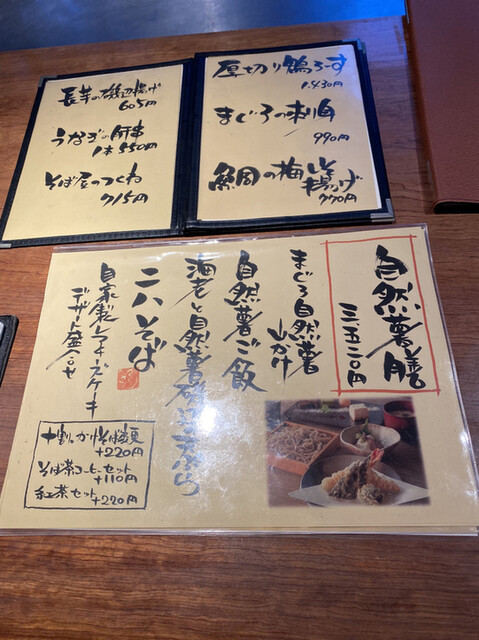 長芋の磯辺揚げ
605円
うなぎの肝串
1本550円
そば屋のつくね
715円
厚切り鴨ろーす
1.430円
まぐろの刺身
990円
鯛の梅しそ揚げ
770円
自然薯膳
三、五二〇円
まぐろ自然薯
山かけ
自然薯ご飯
海老と自然薯磯辺天ぷら
二八そば
自家製レアチーズケーキ
デザート盛合せ
十割、かけそば変更
+220円
そば茶コーヒーセット
+110円
紅茶セット
+220円